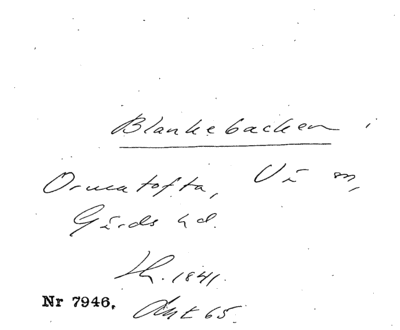 Blankebacken i
Ormatofta, Vä sn,
Gärds hd.
Lh. 1841.
Nr 7946. Akt 65